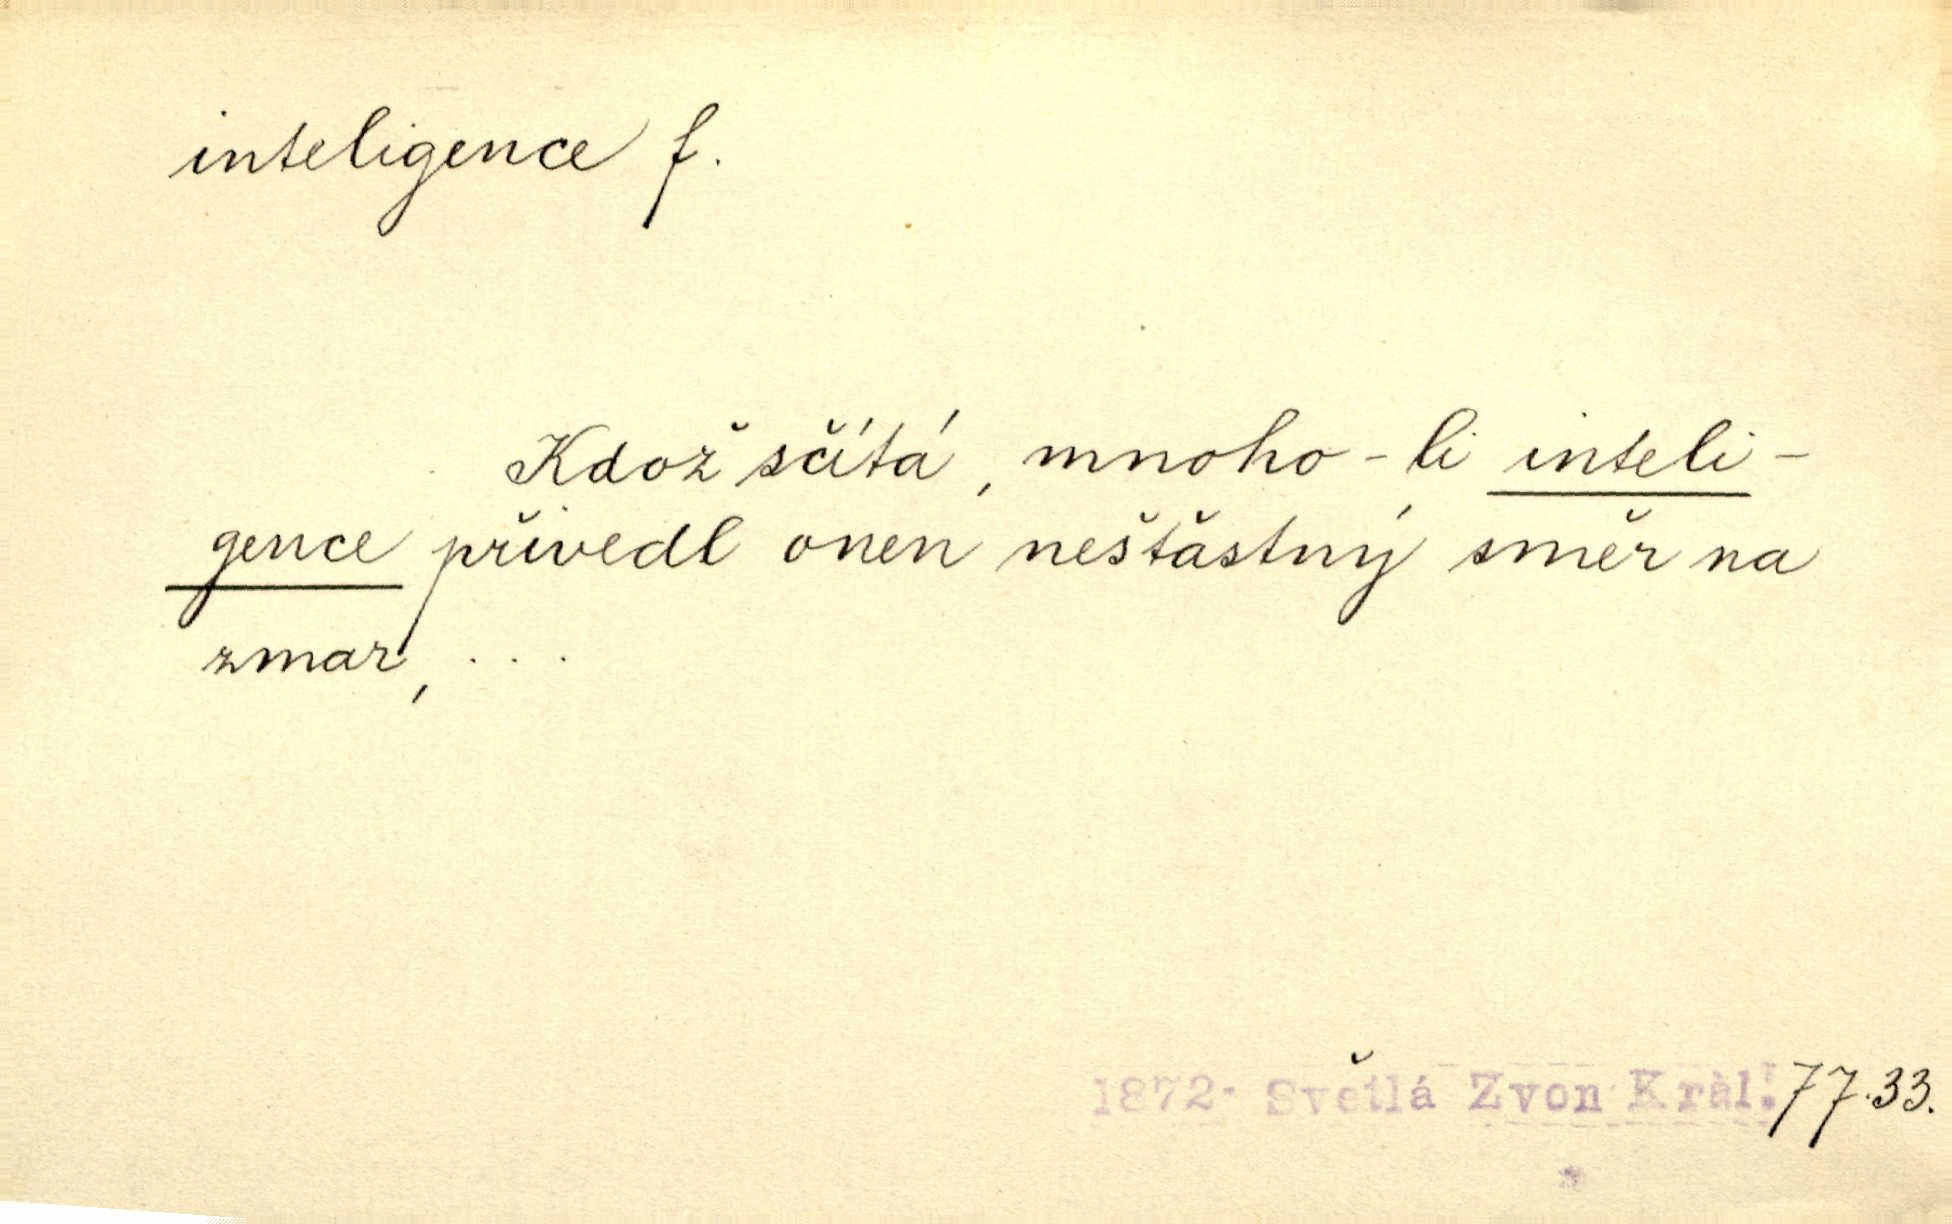 inteligence f.
Kdož sčítá, mnoho-li inteli-
gence přivedl onen nešťastný směr na
zmar, ...
1872. Světlá Zvon Král. 77.33.